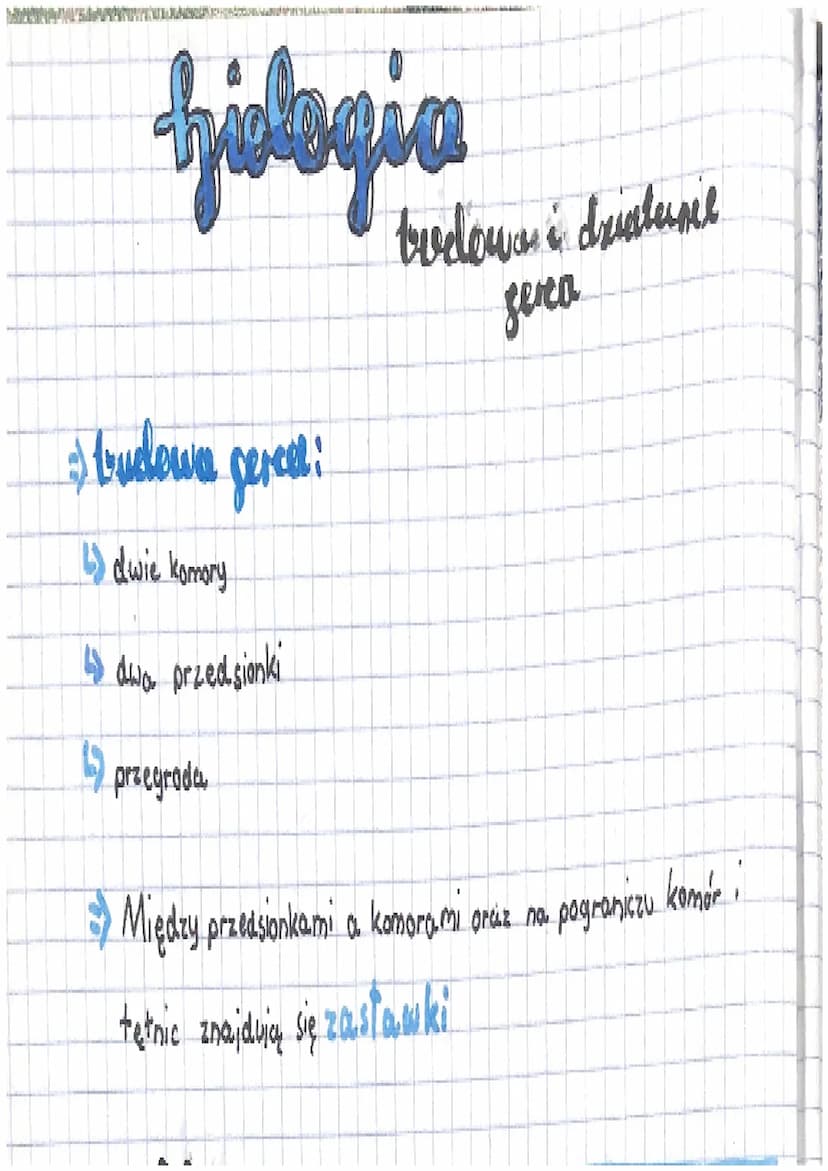 biologia
budowa i działanie
serca
⇒ budowa serca:
↳ dwie komory
↳ dwa przedsionki
↳ przegroda
⇒ Między przedsionkami a komorami oraz na pograniczu komór i
tętnic znajdują się zastawki